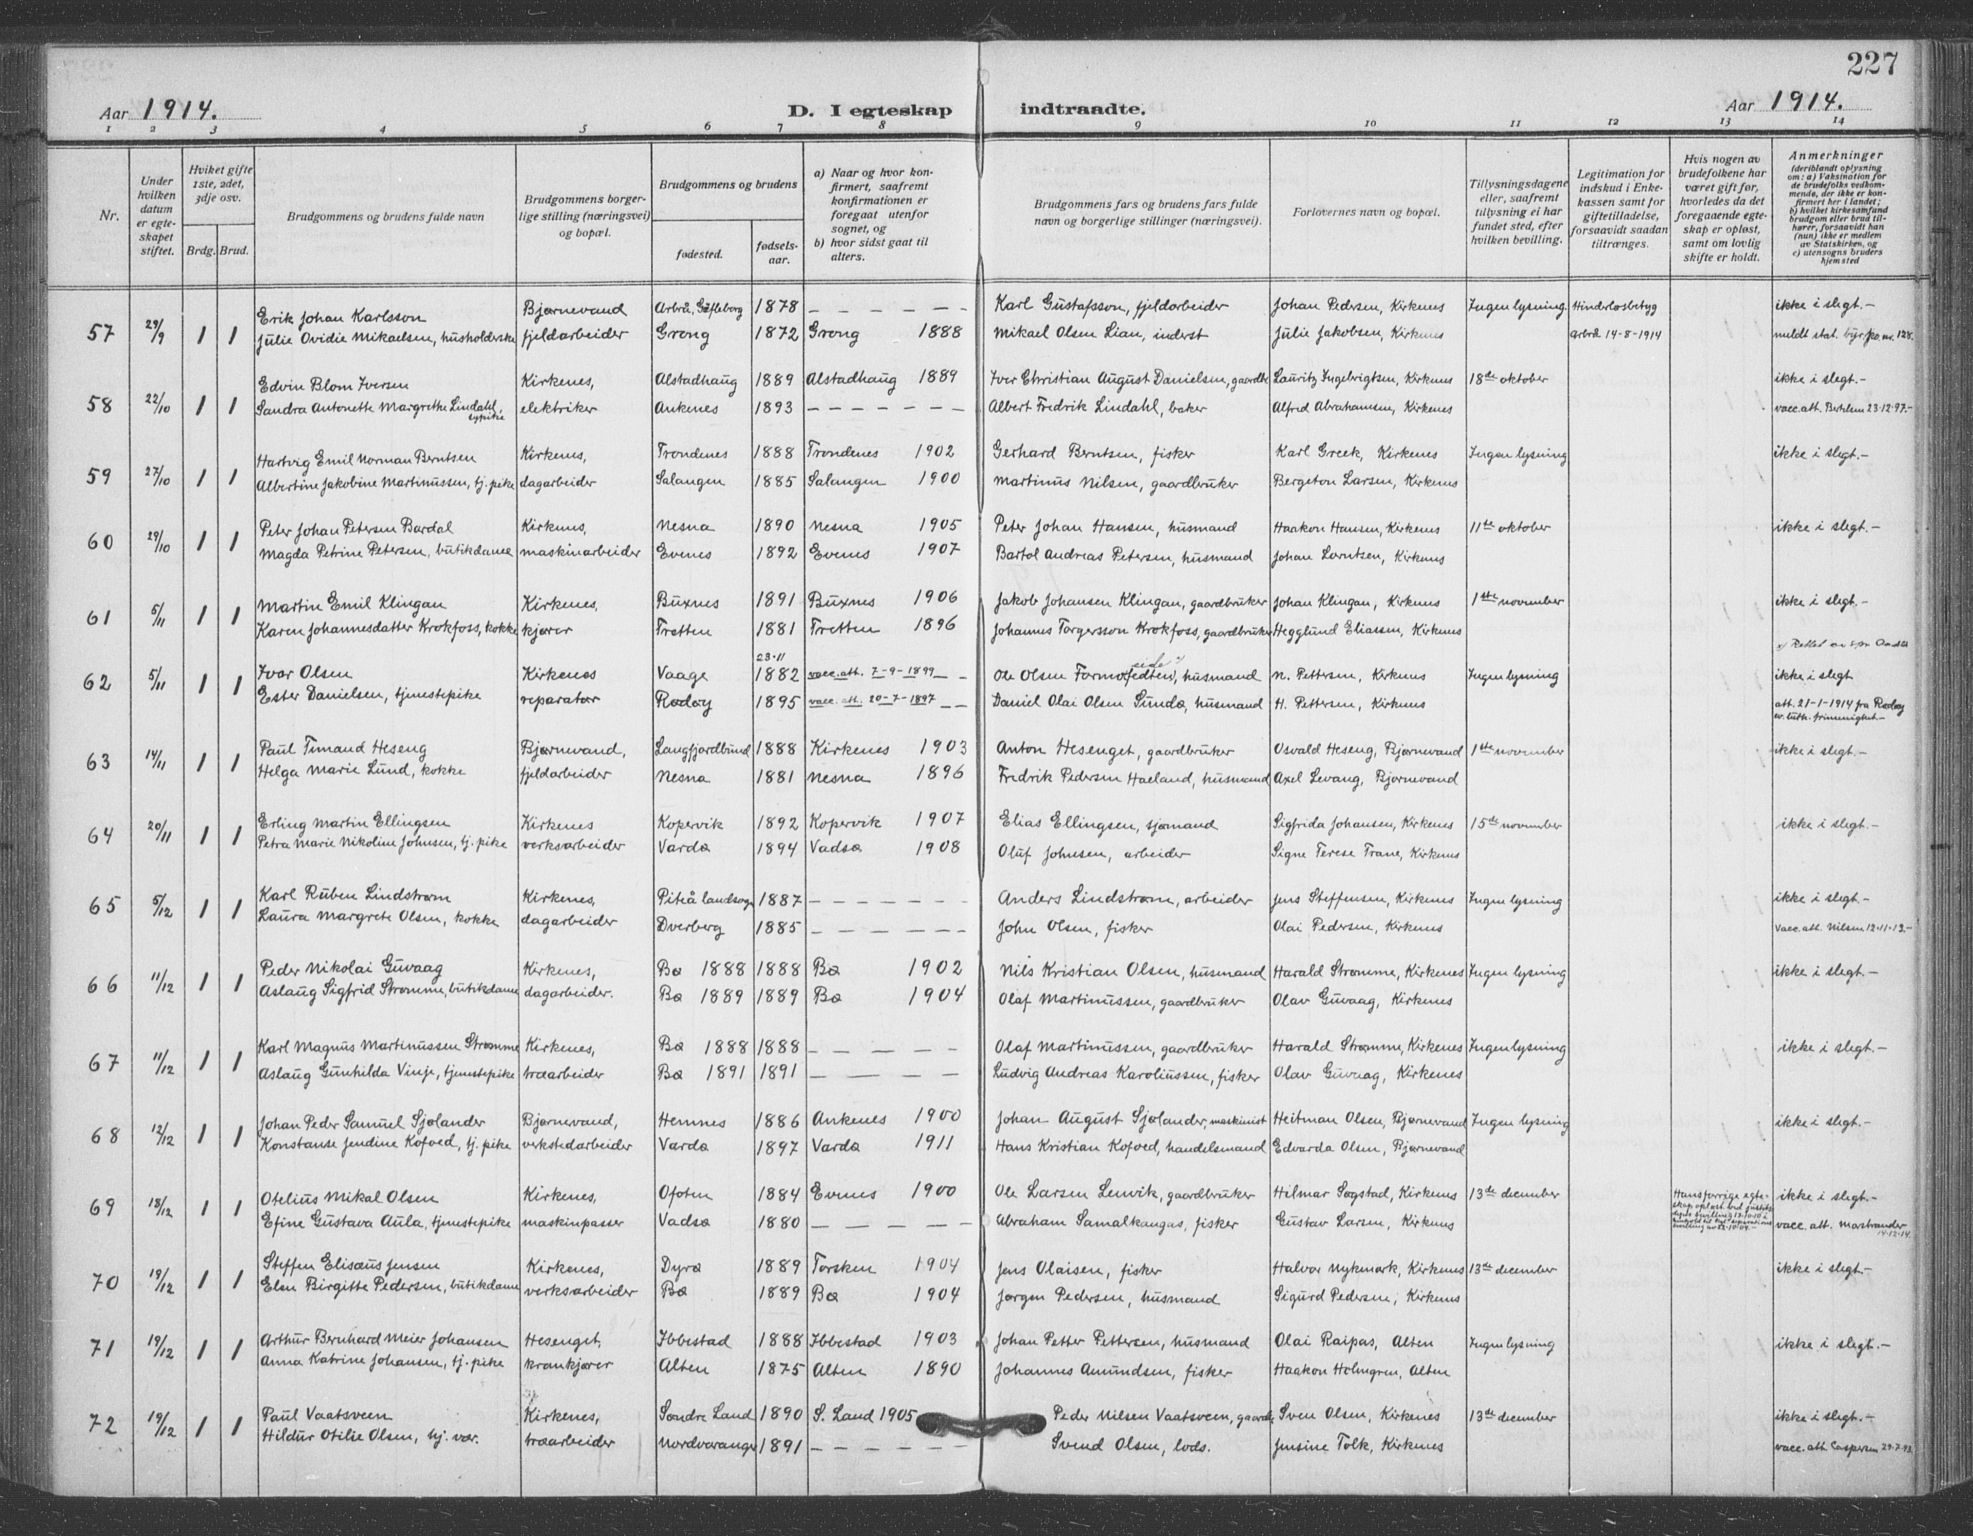 227
Aar 1914.
D. I egteskap indtraadte.
Aar 1914.
1 2 3 4 5 6 7 8 9 10 11 12 13 14
Nr.
Under hvilken datum er egteskapet stiftet.
Hviket gifte 1ste, 2det, 3dje osv.
Brdg. Brud.
Brudgommens og brudens fulde navn
Brudgommens borgerlige stilling (næringsvei) og bopæl.
Brudgommens og brudens
fødested.
fødselsaar.
a) Naar og hvor konfirmert, saafremt konfirmationen er foregaat utenfor sognet, og
b) hvor sidst gaat til alters.
Brudgommens fars og brudens fars fulde navn og borgerlige stillinger (næringsvei).
Forlovernes navn og bopæl.
Tillysningsdagene eller, saafremt tillysning ei har fundet sted, efter hvilken bevilling.
Legitimation for indskud i Enkekassen samt for giftetilladelse, forsaavidt saadan tiltrænges.
Hvis nogen av brudefolkene har været gift før, hvorledes da det foregaaende egteskap er opløst, samt om lovlig skifte er holdt.
Anmerkninger (deriblandt oplysning om: a) Vaksination for de brudefolks vedkommende, der ikke er konfirmert her i landet; b) hvilket kirkesamfund brudgom eller brud tilhører, forsaavidt han (hun) ikke er medlem av Statskirken, og c) utensogns bruders hjemsted
57 29/9 1 1 Erik Johan Karlsson Bjørnevand Arbrå, Gäfleborg 1878 – – – – Karl Gustafsson, fjeldarbeider Johan Pedersen, Kirkenes Ingen lysning Hinderløsbetyg ikke i slegt.-
Julie Ovidie Mikaelsen, husholderske fjeldarbeider Grong 1872 Grong 1888 Mikael Olsen Lian, inderst Julie Jakobsen, Kirkenes Arbrå 14-8-1914 meldt stat. byr. no. 128.
58 22/10 1 1 Edvin Blom Iversen Kirkenes, Alstadhaug 1889 Alstadhaug 1889 Iver Christian August Danielsen, gaardbr Lauritz Ingebrigtsen, Kirkenes 18de oktober ikke i slegt.-
Sandra Antonette Margrethe Lindahl, sypike elektriker Ankenes 1893 – – – – Albert Fredrik Lindahl, baker Alfred Abrahamsen, Kirkenes vacc. att. 23-12-97.-
59 27/10 1 1 Hartvig Emil Norman Berntsen Kirkenes, Trondenes 1888 Trondenes 1902 Gerhard Berntsen, fisker Karl Greek, Kirkenes Ingen lysning ikke i slegt.-
Albertine Jakobine Martinussen, tj. pike dagarbeider Salangen 1885 Salangen 1900 Martinus Nilsen, gaardbruker Bergeton Larsen, Kirkenes
60 29/10 1 1 Peter Johan Petersen Bardal Kirkenes, Nesna 1890 Nesna 1905 Peter Johan Hansen, husmand Haakon Hansen, Kirkenes 11te oktober ikke i slegt.-
Magda Petrine Petersen, butikdame maskinarbeider Evenes 1892 Evenes 1907 Bartol Andreas Petersen, husmand Johan Lorntsen, Kirkenes
61 5/11 1 1 Martin Emil Klingan Kirkenes, Buxnes 1891 Buxnes 1906 Jakob Johansen Klingan, gaardbruker Johan Klingan, Kirkenes 1ste november ikke i slegt.-
Karen Johannesdatter Krokfoss, kokke kjører Tretten 1881 Tretten 1896 Johannes Torgersson Krokfoss, gaardbruker Hegglund Eliassen, Kirkenes
62 5/11 1 1 Ivar Olsen Kirkenes Vaage 23-11 1882 vacc. att. 7-9-1899 Ole Olsen Formofedten, husmand N. Pettersen, Kirkenes Ingen lysning ikke i slegt
Ester Danielsen, tjenestepike reparatør Rødøy 1895 vacc. att. 20-7-1897 Daniel Olai Olsen Sundø, husmand H. Pettersen, Kirkenes att. 21-1-1914 fra Rødøy
63 14/11 1 1 Paul Timand Heseng Bjørnevand, Langfjordbund 1888 Kirkenes 1903 Anton Hesenget, gaardbruker Osvald Heseng, Bjørnevand 1ste november ikke i slegt.-
Helga Marie Lund, kokke fjeldarbeider Nesna 1881 Nesna 1896 Fredrik Pedersen Haeland, husmand Axel Levang, Bjørnevand
64 20/11 1 1 Erling Martin Ellingsen Kirkenes Kopervik 1892 Kopervik 1907 Elias Ellingsen, sjømand Sigfrida Johansen, Kirkenes 15de november ikke i slegt.-
Petra Marie Nikoline Johnsen, tj. pike verksarbeider Vardø 1894 Vadsø 1908 Oluf Johnsen, arbeider Signe Terese Trane, Kirkenes
65 5/12 1 1 Karl Ruben Lindstrøm Kirkenes, Piteå landsogn 1887 – – – – Anders Lindstrøm, arbeider Jens Steffensen, Kirkenes Ingen lysning ikke i slegt.-
Laura Margrete Olsen, kokke dagarbeider Dverberg 1885 – – – – John Olsen, fisker Olai Pedersen, Kirkenes Vacc. att. Nilsen 12-11-12.-
66 11/12 1 1 Peder Nikolai Guvaag Kirkenes, Bø 1888 1888 Bø 1902 Nils Kristian Olsen, husmand Harald Strømme, Kirkenes Ingen lysning ikke i slegt.-
Aslaug Sigfrid Strømme, butikdame dagarbeider. Bø 1889 1889 Bø 1904 Olaf Martinussen, gaardbruker Olav Guvaag, Kirkenes
67 11/12 1 1 Karl Magnus Martinussen Strømme Kirkenes, Bø 1888 1888 – – – – Olaf Martinussen, gaardbruker Harald Strømme, Kirkenes Ingen lysning ikke i slegt.-
Aslaug Gunhilda Vinje, tjenestepike træarbeider Bø 1891 1891 – – – – Ludvig Andreas Karoliussen, fisker Olav Guvaag, Kirkenes
68 12/12 1 1 Johan Peder Samuel Sjølander Bjørnevand, Hemnes 1886 Ankenes 1900 Johan August Sjølander, maskinist Heitman Olsen, Bjørnevand Ingen lysning ikke i slegt.-
Konstanse Jendine Kofoed, tj. pike verkstedarbeider Vardø 1897 Vardø 1911 Hans Kristian Kofoed, handelsmand Edvarda Olsen, Bjørnevand
69 18/12 1 1 Otelius Mikal Olsen Kirkenes, Ofoten 1884 Evenes 1900 Ole Larsen Lenvik, gaardbruker Hilmar Sogstad, Kirkenes 13de december Hans forrige egteskap opløst ved ikke i slegt.-
Efine Gustava Aula, tjenestepike maskinpasser Vadsø 1880 – – – – Abraham Samalkangas, fisker Gustav Larsen, Kirkenes vacc. att. Mastrander 14-12-14.
70 19/12 1 1 Steffen Elisæus Jensen Kirkenes, Dyrø 1889 Torsken 1904 Jens Olaisen, fisker Halvor Nykmark, Kirkenes 13de december ikke i slegt.-
Elen Birgitte Pedersen, butikdame verksarbeider Bø 1889 Bø 1904 Jørgen Pedersen, husmand Sigurd Pedersen, Kirkenes
71 19/12 1 1 Arthur Bernhard Meier Johansen Hesenget, Ibbestad 1888 Ibbestad 1903 Johan Petter Pettersen, husmand Olai Raipas, Alten Ingen lysning ikke i slegt.-
Anna Katrine Johansen, tj. pike krankjører Alten 1875 Alten 1890 Johannes Amundsen, fisker Haakon Holmgren, Alten
72 19/12 1 1 Paul Vaatsveen Kirkenes, Søndre Land 1890 S. Land 1905 Peder Nilsen Vaatsveen, gaardbr Sven Olsen, Kirkenes 13de december ikke i slegt.-
Hildur Otilie Olsen, tj. vær. træarbeider Nordvaranger 1891 – – – – Svend Olsen, lods. Jensine Tolk, Kirkenes vacc. att. Caspersen 29-7-93.